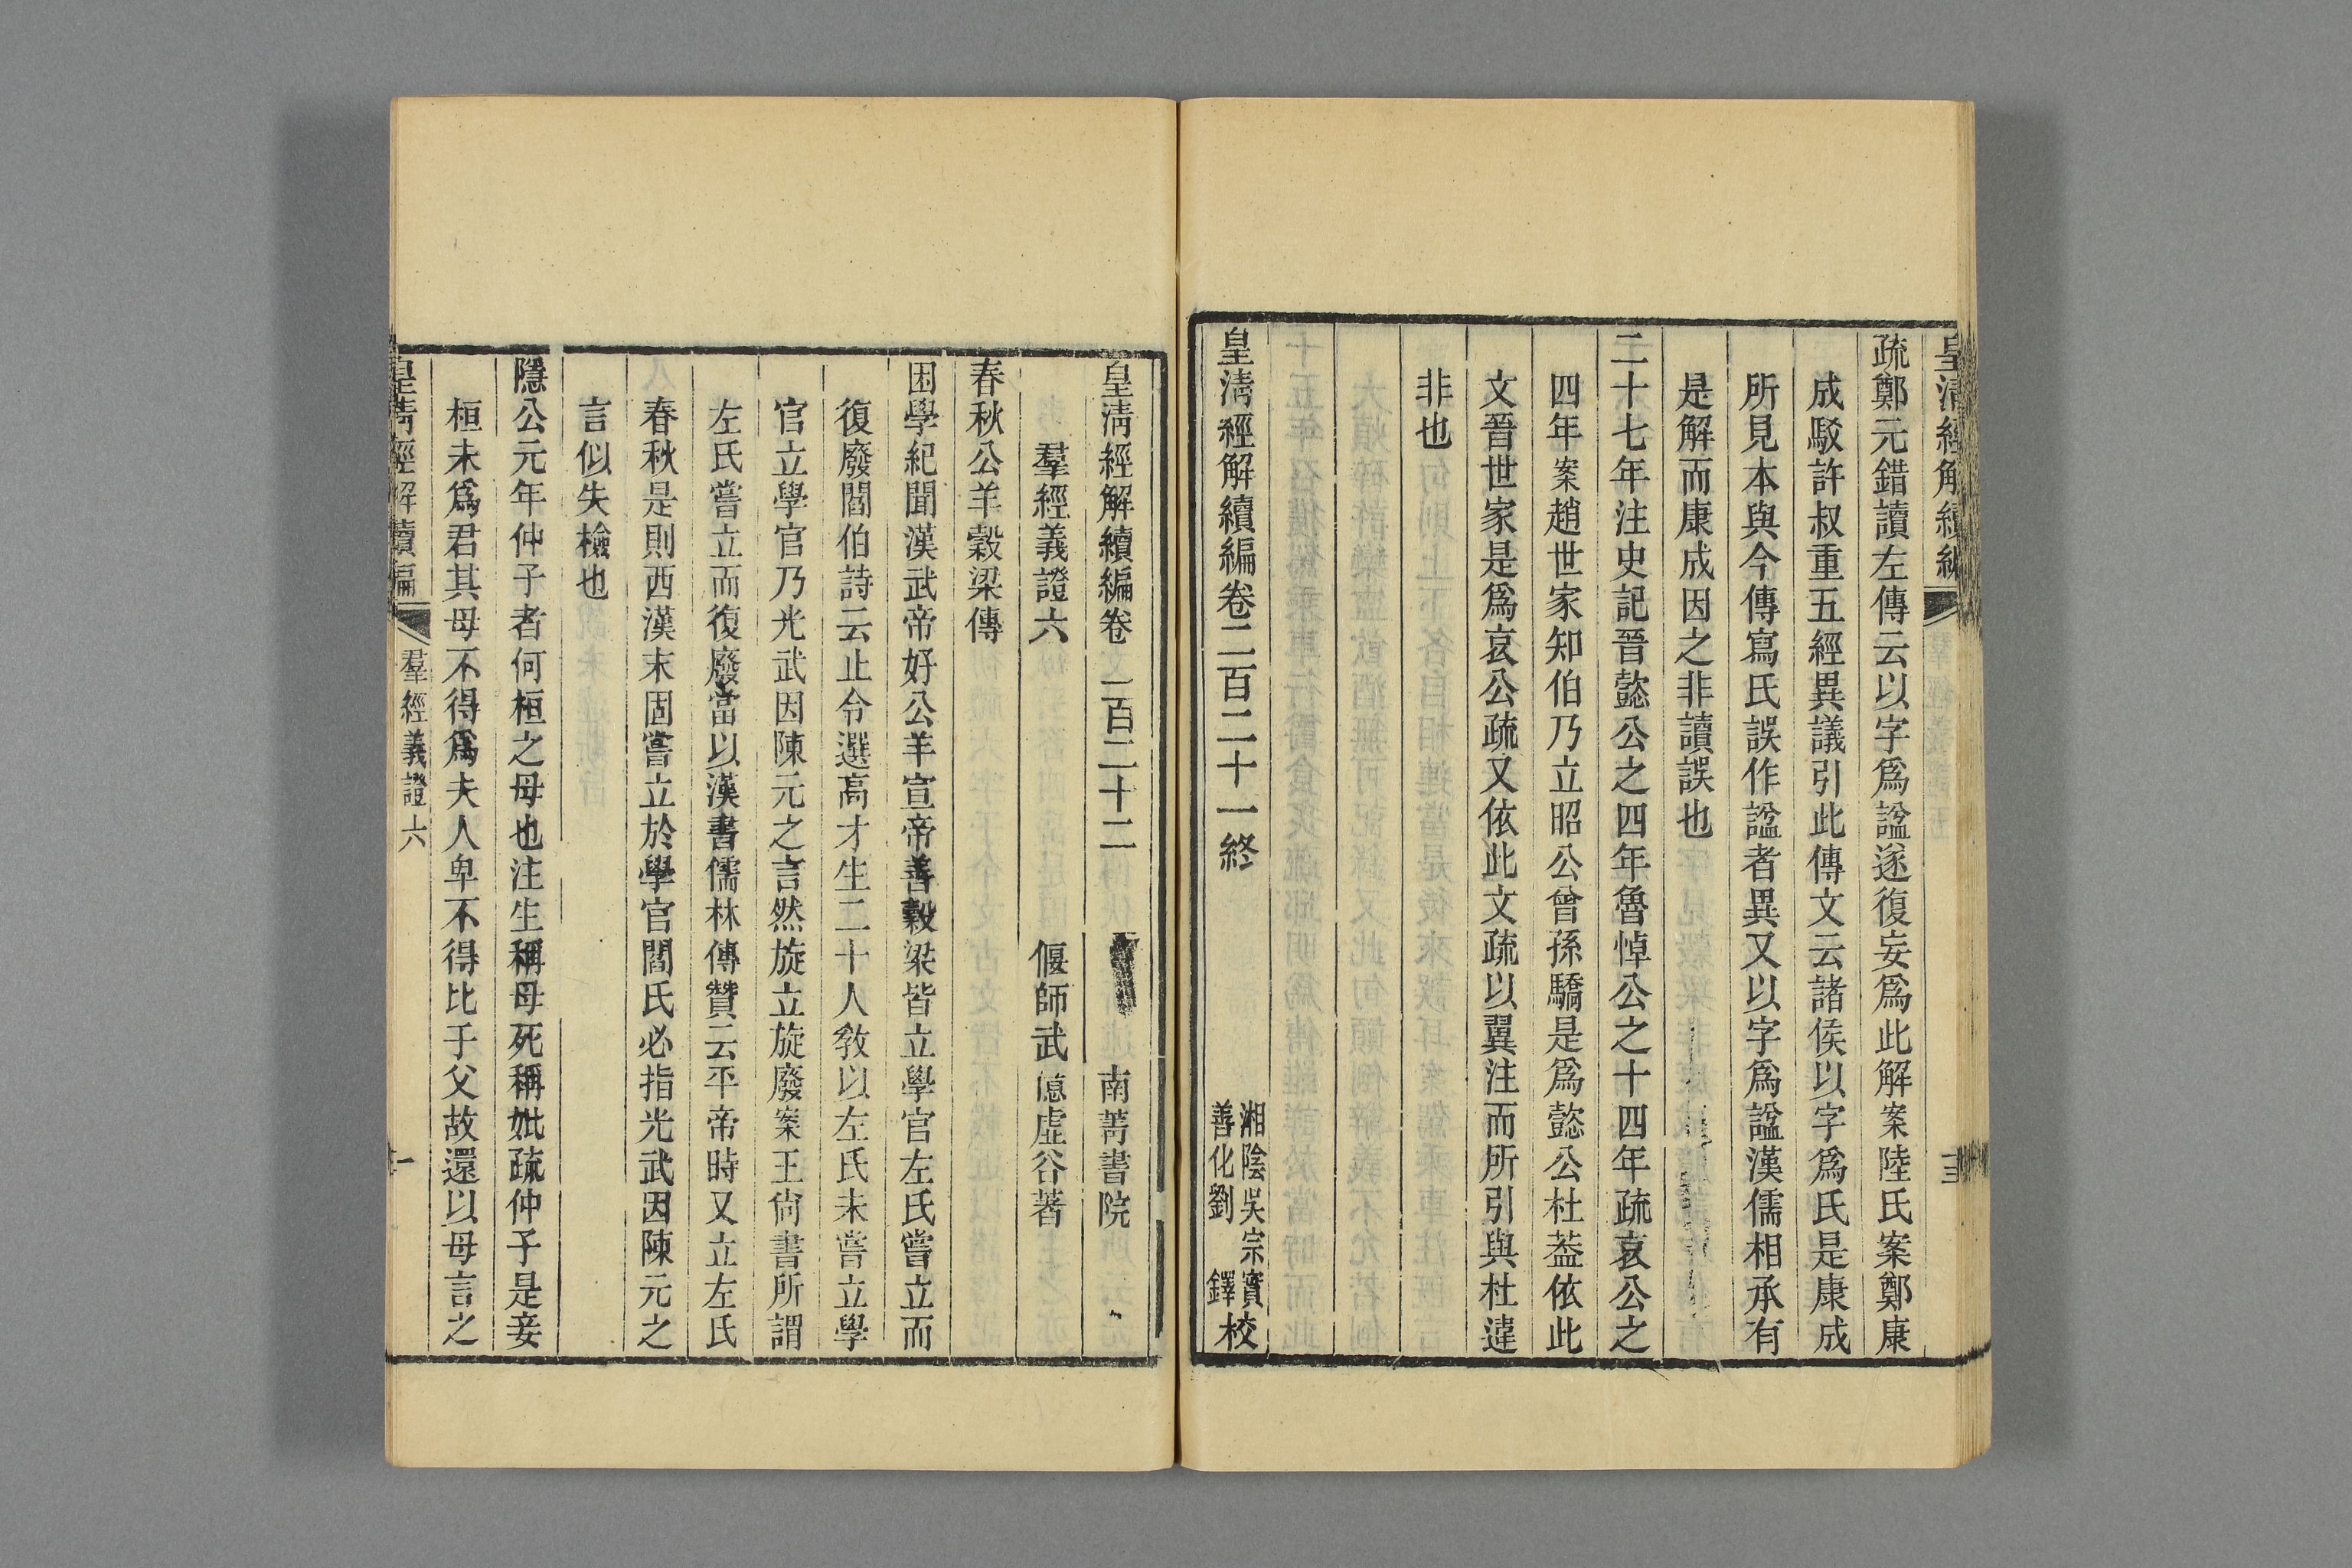 皇清經解續編
十三
疏鄭元錯讀左傳云以字爲諡遂復妄爲此解案陸氏案鄭康
成駁許叔重五經異議引此傳文云諸侯以字爲氏是康成
所見本與今傳寫氏誤作諡者異又以字爲諡漢儒相承有
是解而康成因之非讀誤也
二十七年注史記晉懿公之四年魯悼公之十四年疏哀公之
四年案趙世家知伯乃立昭公曾孫驕是爲懿公杜葢依此
文晉世家是爲哀公疏又依此文疏以翼注而所引與杜違
非也
皇清經解續編卷二百二十一終
湘陰吳宗實
善化劉鐸校
皇清經解續編卷二百二十二
南菁書院
羣經義證六
偃師武億虛谷著
春秋公羊穀梁傳
困學紀聞漢武帝好公羊宣帝善穀梁皆立學官左氏嘗立而
復廢閻伯詩云止令選高才生二十人敎以左氏未嘗立學
官立學官乃光武因陳元之言然旋立旋廢案王尙書所謂
左氏嘗立而復廢當以漢書儒林傳贊云平帝時又立左氏
春秋是則西漢末固嘗立於學官閻氏必指光武因陳元之
言似失檢也
隱公元年仲子者何桓之母也注生稱母死稱妣疏仲子是妾
桓未爲君其母不得爲夫人卑不得比于父故還以母言之
皇清經解續編
羣經義證六
一